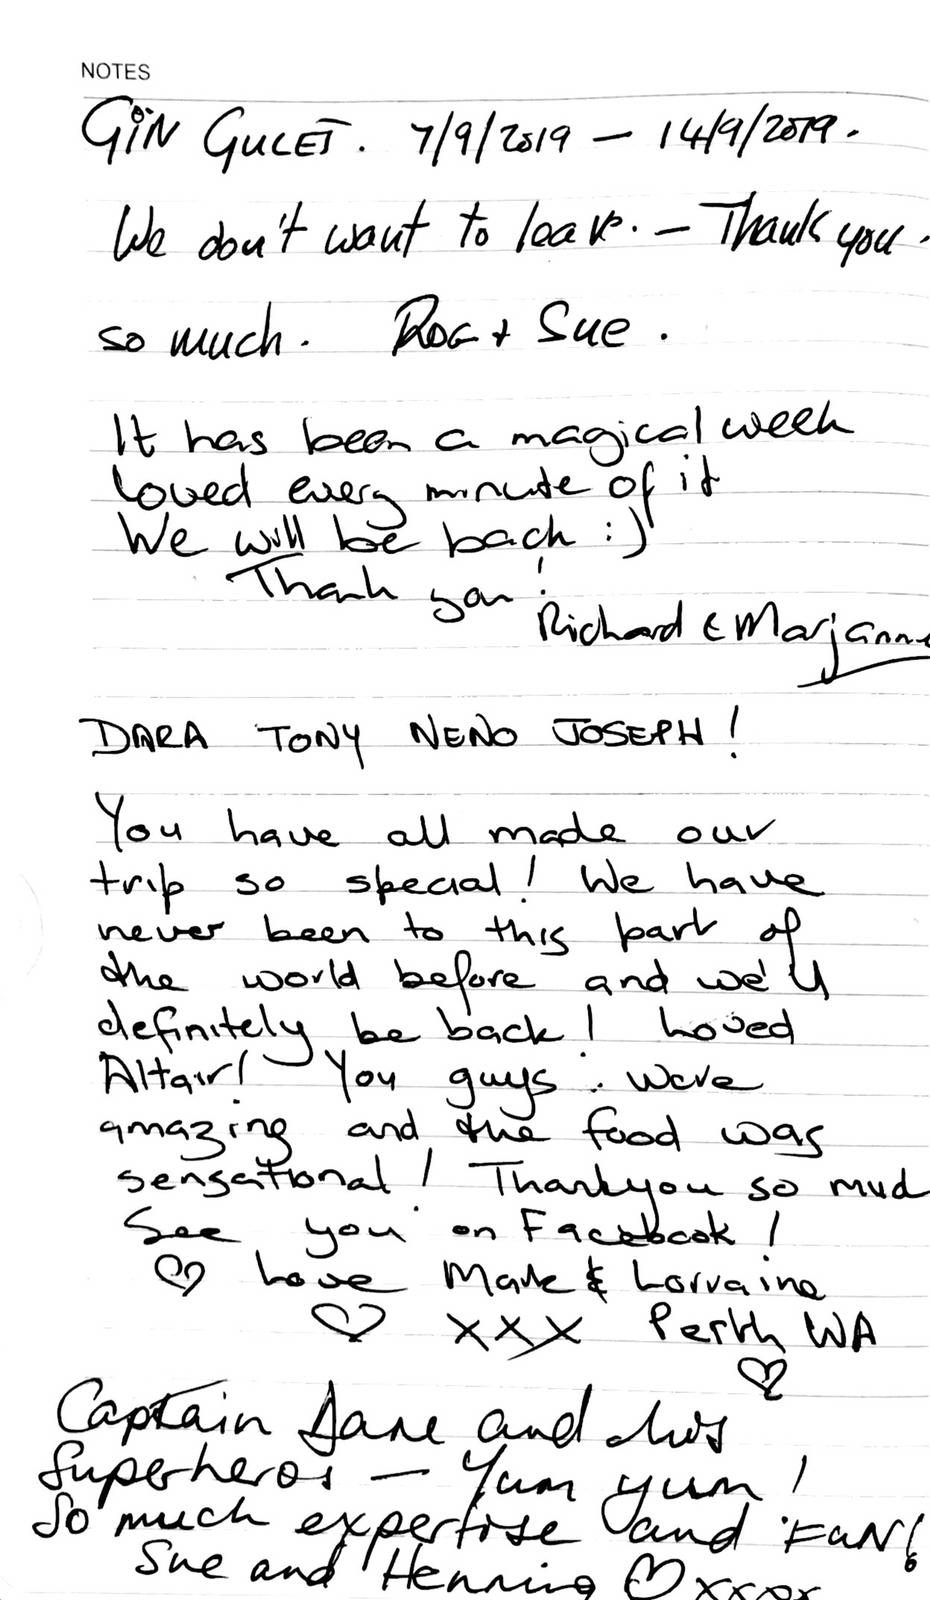 NOTES
GIN GULET. 7/9/2019 – 14/9/2019.
We don't want to leave. – Thank you
so much. Rog + Sue.
It has been a magical week
Loved every minute of it
We will be back :)
Thank you!
Richard & Marjanne
DARA TONY NENO JOSEPH!
You have all made our
trip so special! We have
never been to this part of
the world before and we'll
definitely be back! Loved
Altair! You guys were
amazing and the food was
sensational! Thankyou so much
See you on Facebook!
♡ Love Mark & Lorraine
♡ xxx Perth WA
♡
Captain and his
Superheros – Yum yum!
So much expertise and FUN!
Sue and Henning ♡ xxxx